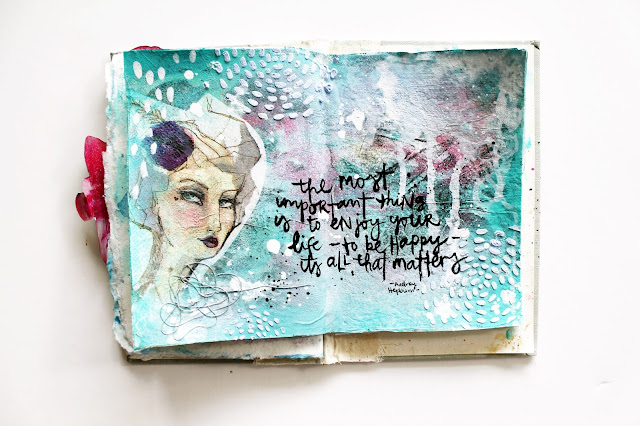 the most
important thing
is to enjoy your
life - to be happy -
its all that matters
- Audrey
Hepburn -